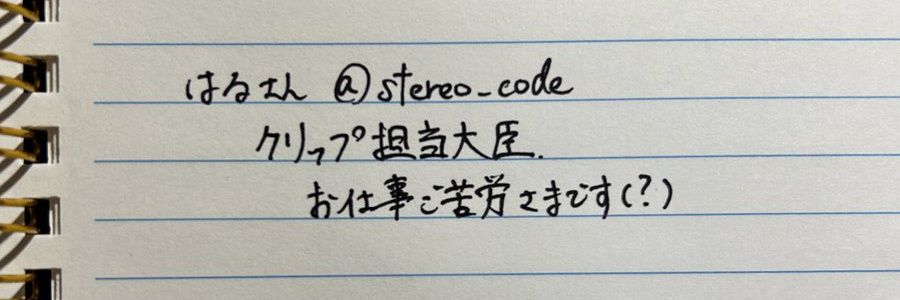 はるさん @stereo_code
クリップ担当大臣.
お仕事ご苦労さまです(?)